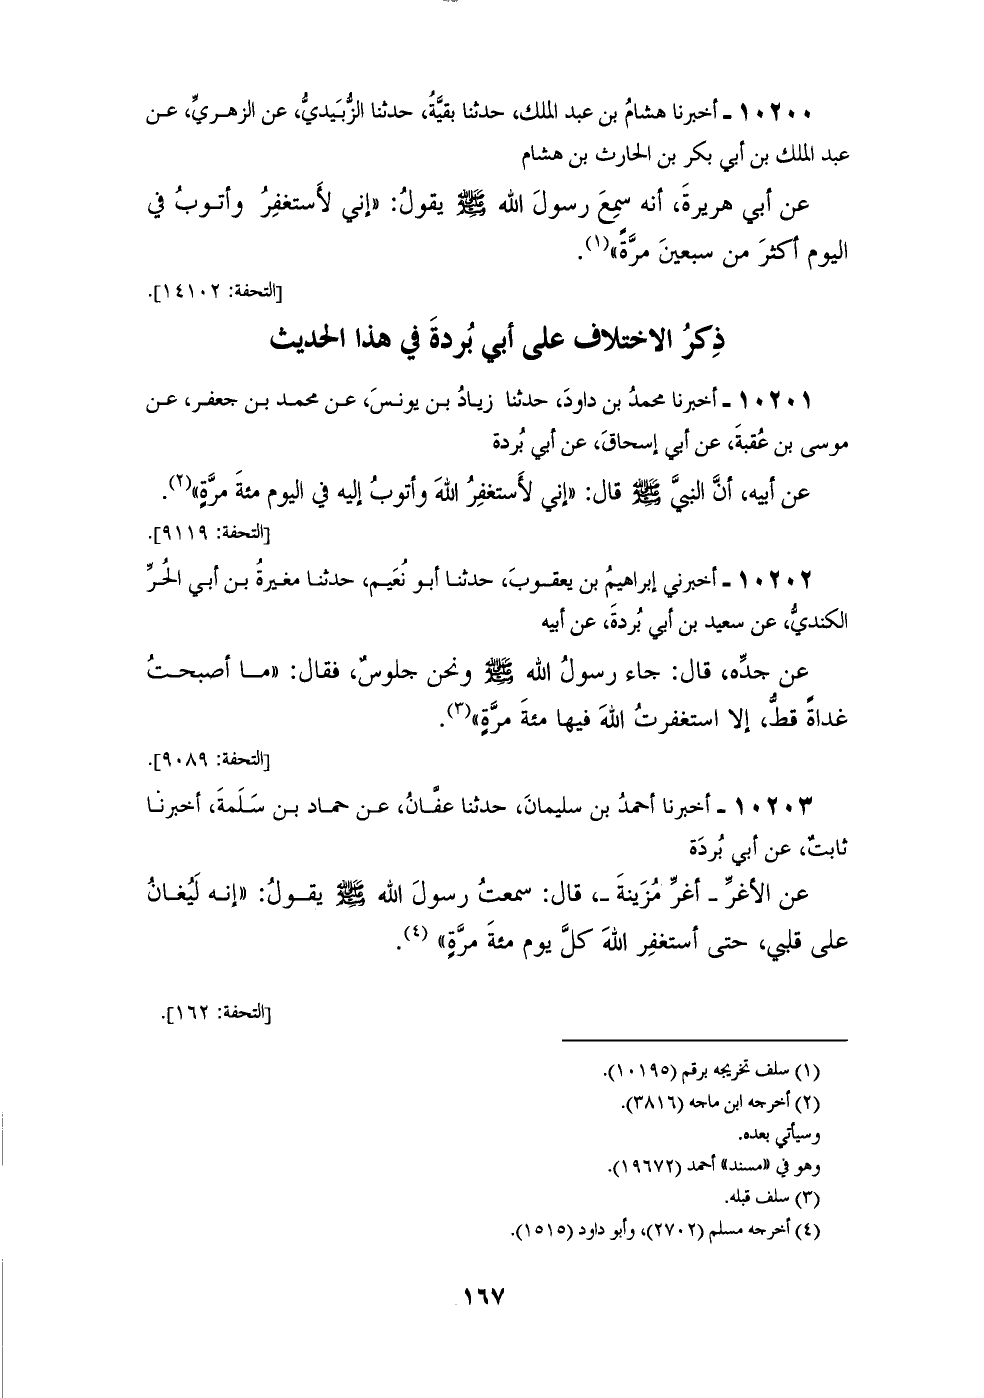 ١٠٢٠٠ ـ أخبرنا هشامُ بن عبد الملك، حدثنا بقيَّةُ، حدثنا الزُّبَيديُّ، عن الزهريِّ، عن
عبد الملك بن أبي بكر بن الحارث بن هشام
عن أبي هريرةَ، أنه سمِعَ رسولَ الله ﷺ يقولُ: «إني لأَستغفِرُ وأتوبُ في
اليوم أكثرَ من سبعينَ مرَّةً»(١).
[التحفة: ١٤١٠٢].
ذِكرُ الاختلاف على أبي بُردةَ في هذا الحديث
١٠٢٠١ ـ أخبرنا محمدُ بن داودَ، حدثنا زيادُ بن يونسَ، عن محمد بن جعفر، عن
موسى بن عُقبةَ، عن أبي إسحاقَ، عن أبي بُردة
عن أبيه، أنَّ النبيَّ ﷺ قال: «إني لأَستغفِرُ اللهَ وأتوبُ إليه في اليوم مئةَ مرَّةٍ»(٢).
[التحفة: ٩١١٩].
١٠٢٠٢ ـ أخبرني إبراهيمُ بن يعقوبَ، حدثنا أبو نُعَيم، حدثنا مغيرةُ بن أبي الحُرِّ
الكنديُّ، عن سعيد بن أبي بُردةَ، عن أبيه
عن جدِّه، قال: جاء رسولُ الله ﷺ ونحن جلوسٌ، فقال: «ما أصبحتُ
غداةً قطُّ، إلا استغفرتُ اللهَ فيها مئةَ مرَّةٍ»(٣).
[التحفة: ٩٠٨٩].
١٠٢٠٣ ـ أخبرنا أحمدُ بن سليمانَ، حدثنا عفَّانُ، عن حماد بن سَلَمةَ، أخبرنا
ثابتٌ، عن أبي بُردَة
عن الأغرِّ ـ أغرِّ مُزَينةَ ـ، قال: سمعتُ رسولَ الله ﷺ يقولُ: «إنه لَيُغانُ
على قلبي، حتى أستغفِر اللهَ كلَّ يوم مئةَ مرَّةٍ» (٤).
[التحفة: ١٦٢].
(١) سلف تخريجه برقم (١٠١٩٥).
(٢) أخرجه ابن ماجه (٣٨١٦).
وسيأتي بعده.
وهو في «مسند» أحمد (١٩٦٧٢).
(٣) سلف قبله.
(٤) أخرجه مسلم (٢٧٠٢)، وأبو داود (١٥١٥).
١٦٧